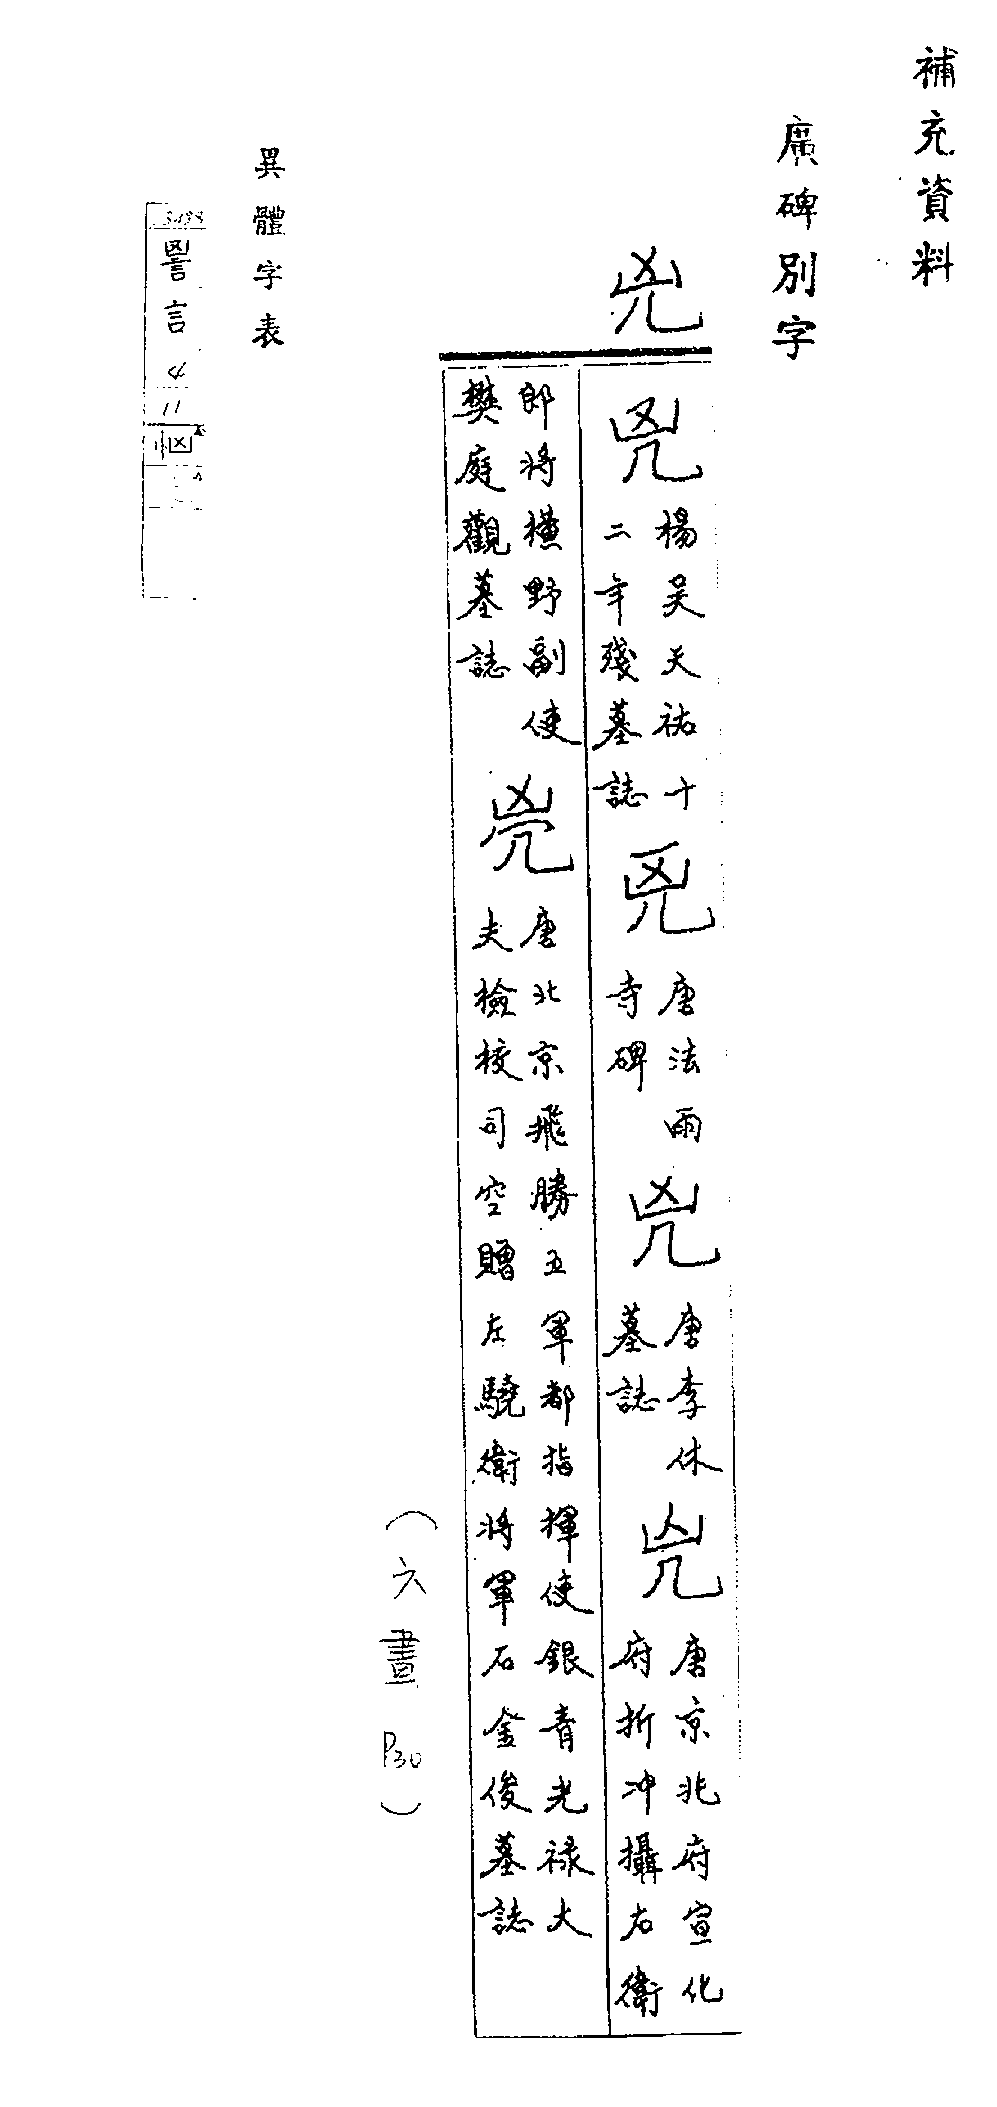 補充資料
廣碑別字
兇
兇
楊吴天祐十
二年殘墓誌
兇
唐法雨
寺碑
兇
唐李休
墓誌
兇
唐京兆府宣化
府折冲攝右衛
郎将橫野副使
樊庭觀墓誌
兇
唐北京飛勝五軍都指揮使銀青光禄大
夫檢校司空贈左驍衛将軍石金俊墓誌
(六畫 P30)
異體字表
言
4
11